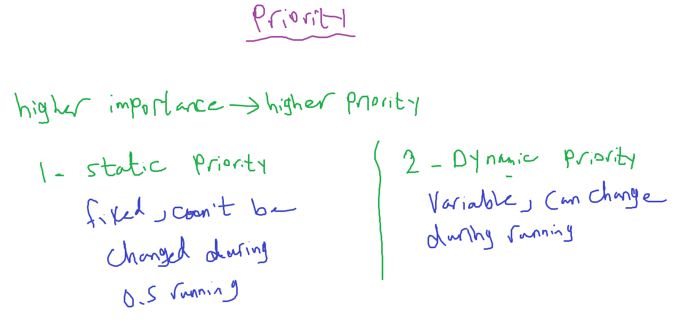 Priority
higher importance → higher priority
1- static Priority
fixed, can't be
changed during
O.S running
2 - Dynamic Priority
Variable, Can change
during running